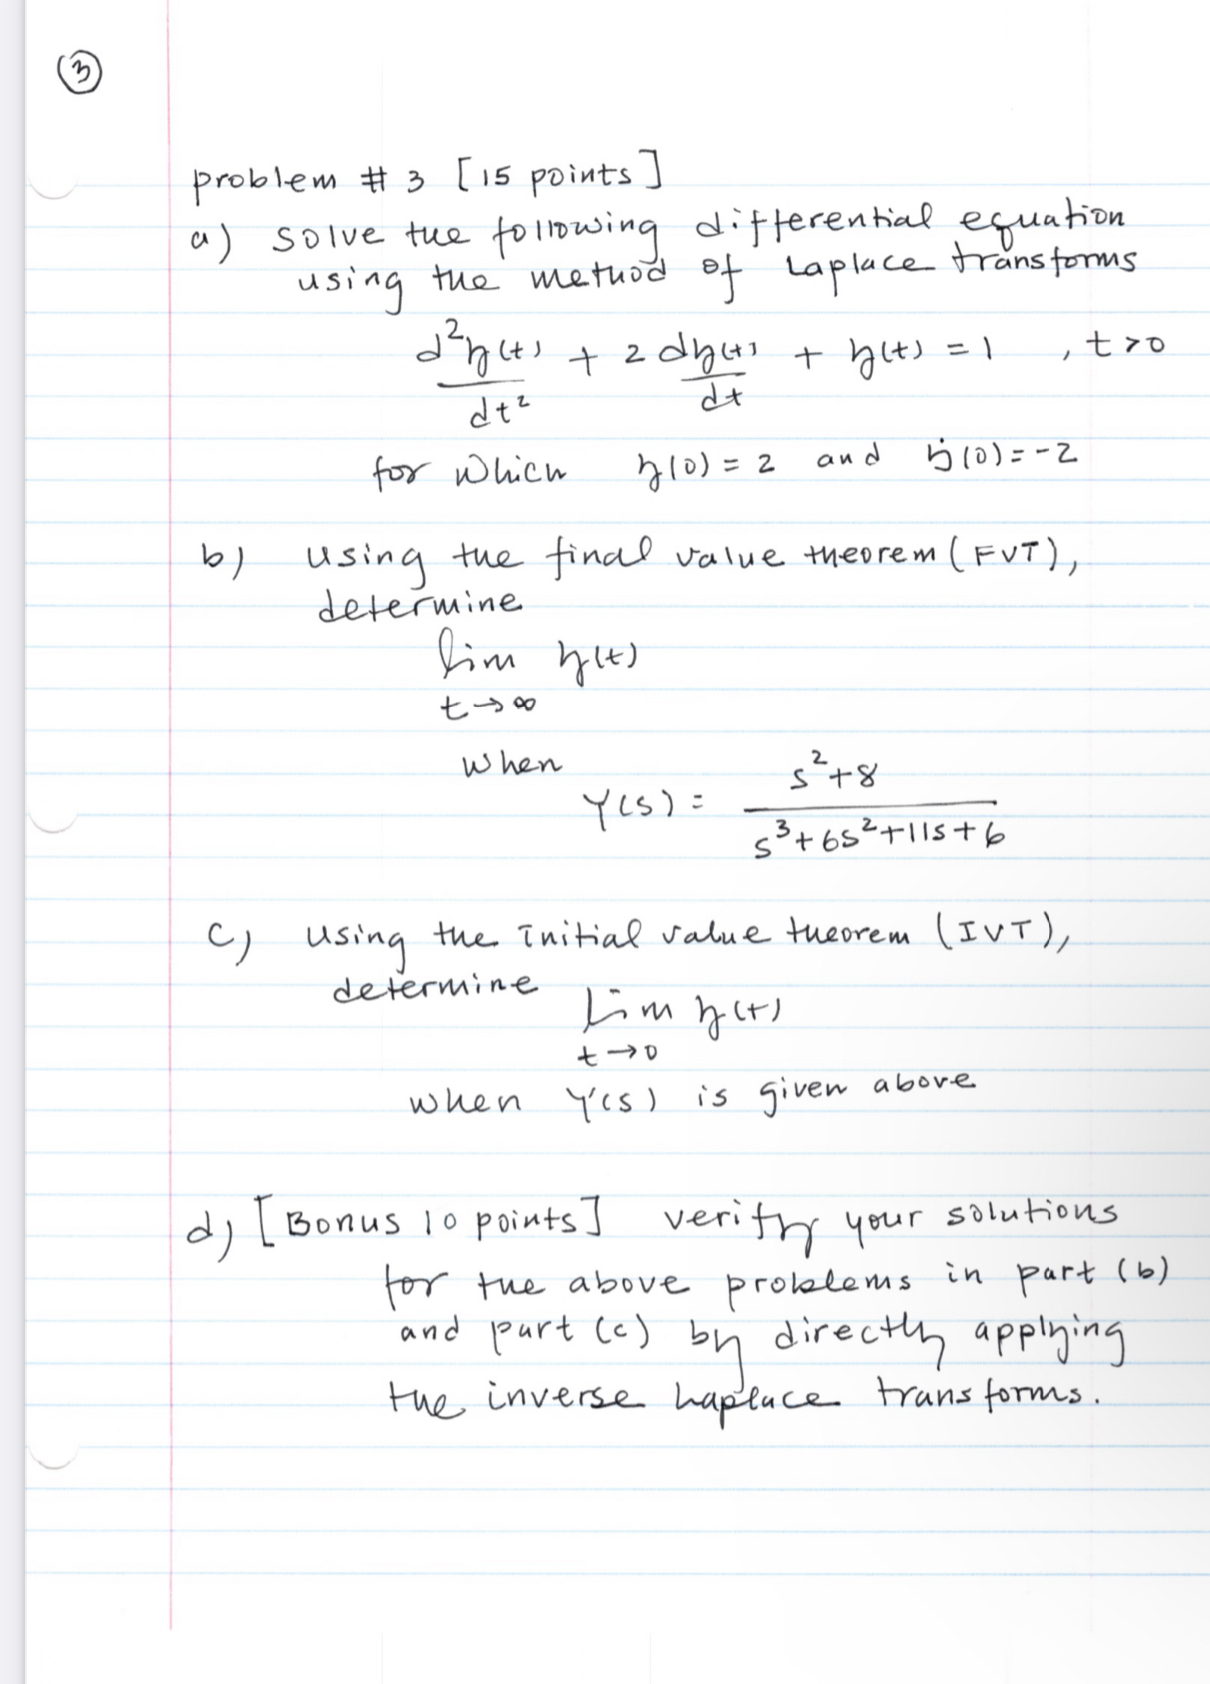 ③
problem # 3 [15 points]
a) solve the following differential equation
using the method of Laplace transforms
d²y(t)/dt² + 2 dy(t)/dt + y(t) = 1 , t>0
for which y(0) = 2 and ẏ(0) = -2
b) using the final value theorem (FVT),
determine
lim y(t)
t→∞
when
Y(s) = (s²+8)/(s³+6s²+11s+6)
c) using the initial value theorem (IVT),
determine
Lim y(t)
t→0
when Y(s) is given above
d) [Bonus 10 points] verify your solutions
for the above problems in part (b)
and part (c) by directly applying
the inverse Laplace transforms.